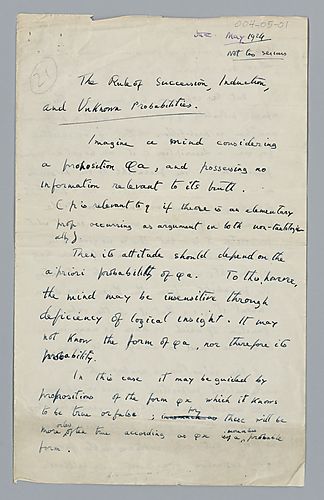 004-05-01
May 1924
Not too serious
21
The Rule of Succession, Induction,
and Unknown Probabilities.
Imagine a mind considering
a proposition φa, and possessing no
information relevant to its truth.
(p is relevant to q if there is an elementary
prop occurring as argument in both non-tautologic-
ally)
Then its attitude should depend on the
a priori probability of φa. To this, however,
the mind may be insensitive through
deficiency of logical insight. It may
not know the form of φa, nor therefore its
probability.
In this case it may be guided by
propositions of the form φx which it knows
to be true or false; for these will be
more often true according as φx is a more probable
form.